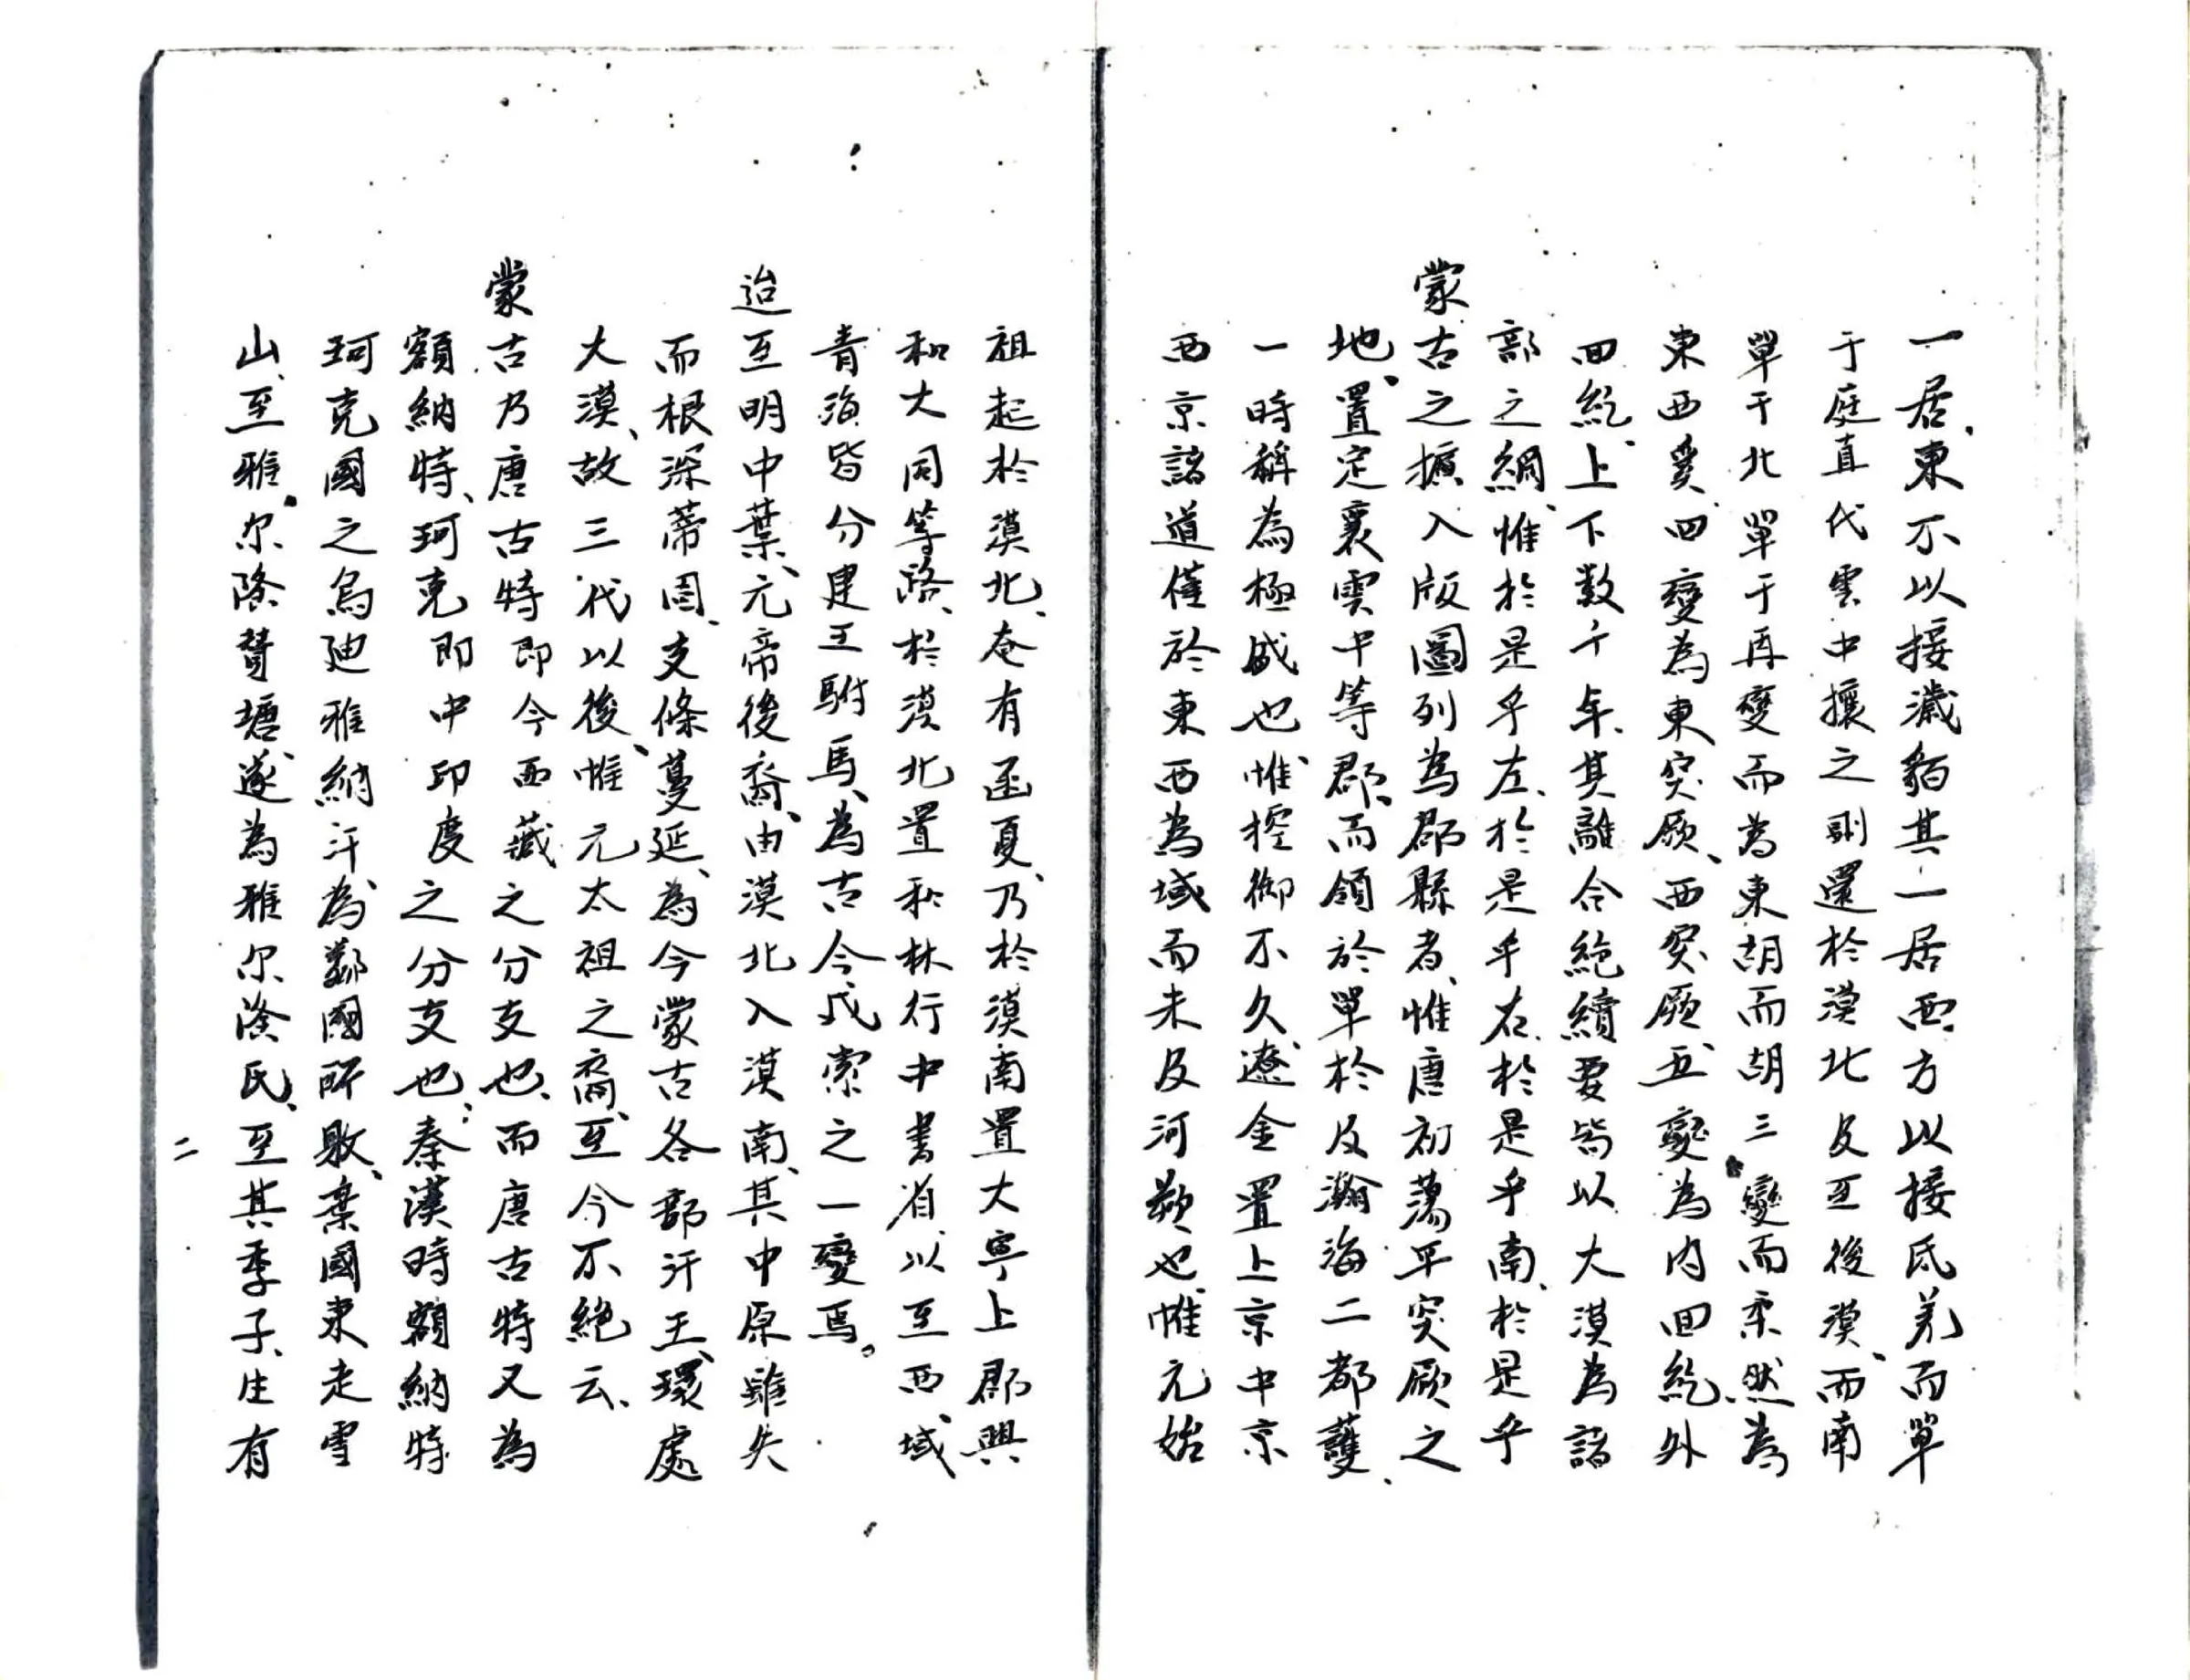 一居東不以接濊貊其一居西方以接氐羌而單
于庭直代雲中攘之則還於漠北及至後漢、而南
單于北單于再變而為東胡而胡三變而柔然為
東西奚四變為東突厥、西突厥、五變為內回紇、外
回紇、上下数千年、其離合絶續要皆以大漠為諸
部之綱、惟於是乎左、於是乎右、於是乎南、於是乎
蒙古之擴入版圖列為郡縣者、惟唐初蕩平突厥之
地、置定襄雲中等郡、而領於單於及瀚海二都護、
一時稱為極盛也、惟控御不久、遼金置上京中京
西京諸道僅於東西為域而未及河歟也、惟元始
祖起於漠北、奄有函夏、乃於漠南置大寧上郡興
和大同等路、於漠北置和林行中書省、以至西域、
青海皆分建王駙馬、為古今戎索之一變焉。
迨至明中葉、元帝後裔、由漠北入漠南、其中原雖失
而根深蒂固、支條蔓延、為今蒙古各部汗王、環處
大漠、故三代以後、惟元太祖之裔、至今不絶云、
蒙古乃唐古特即今西藏之分支也、而唐古特又為
額納特、珂克即中印度之分支也、秦漢時額納特
珂克國之烏廸雅納汗、為鄰國所敗、棄國東走雪
山、至雅尔隆贊塘、遂為雅尔隆氏、至其季子、生有
二